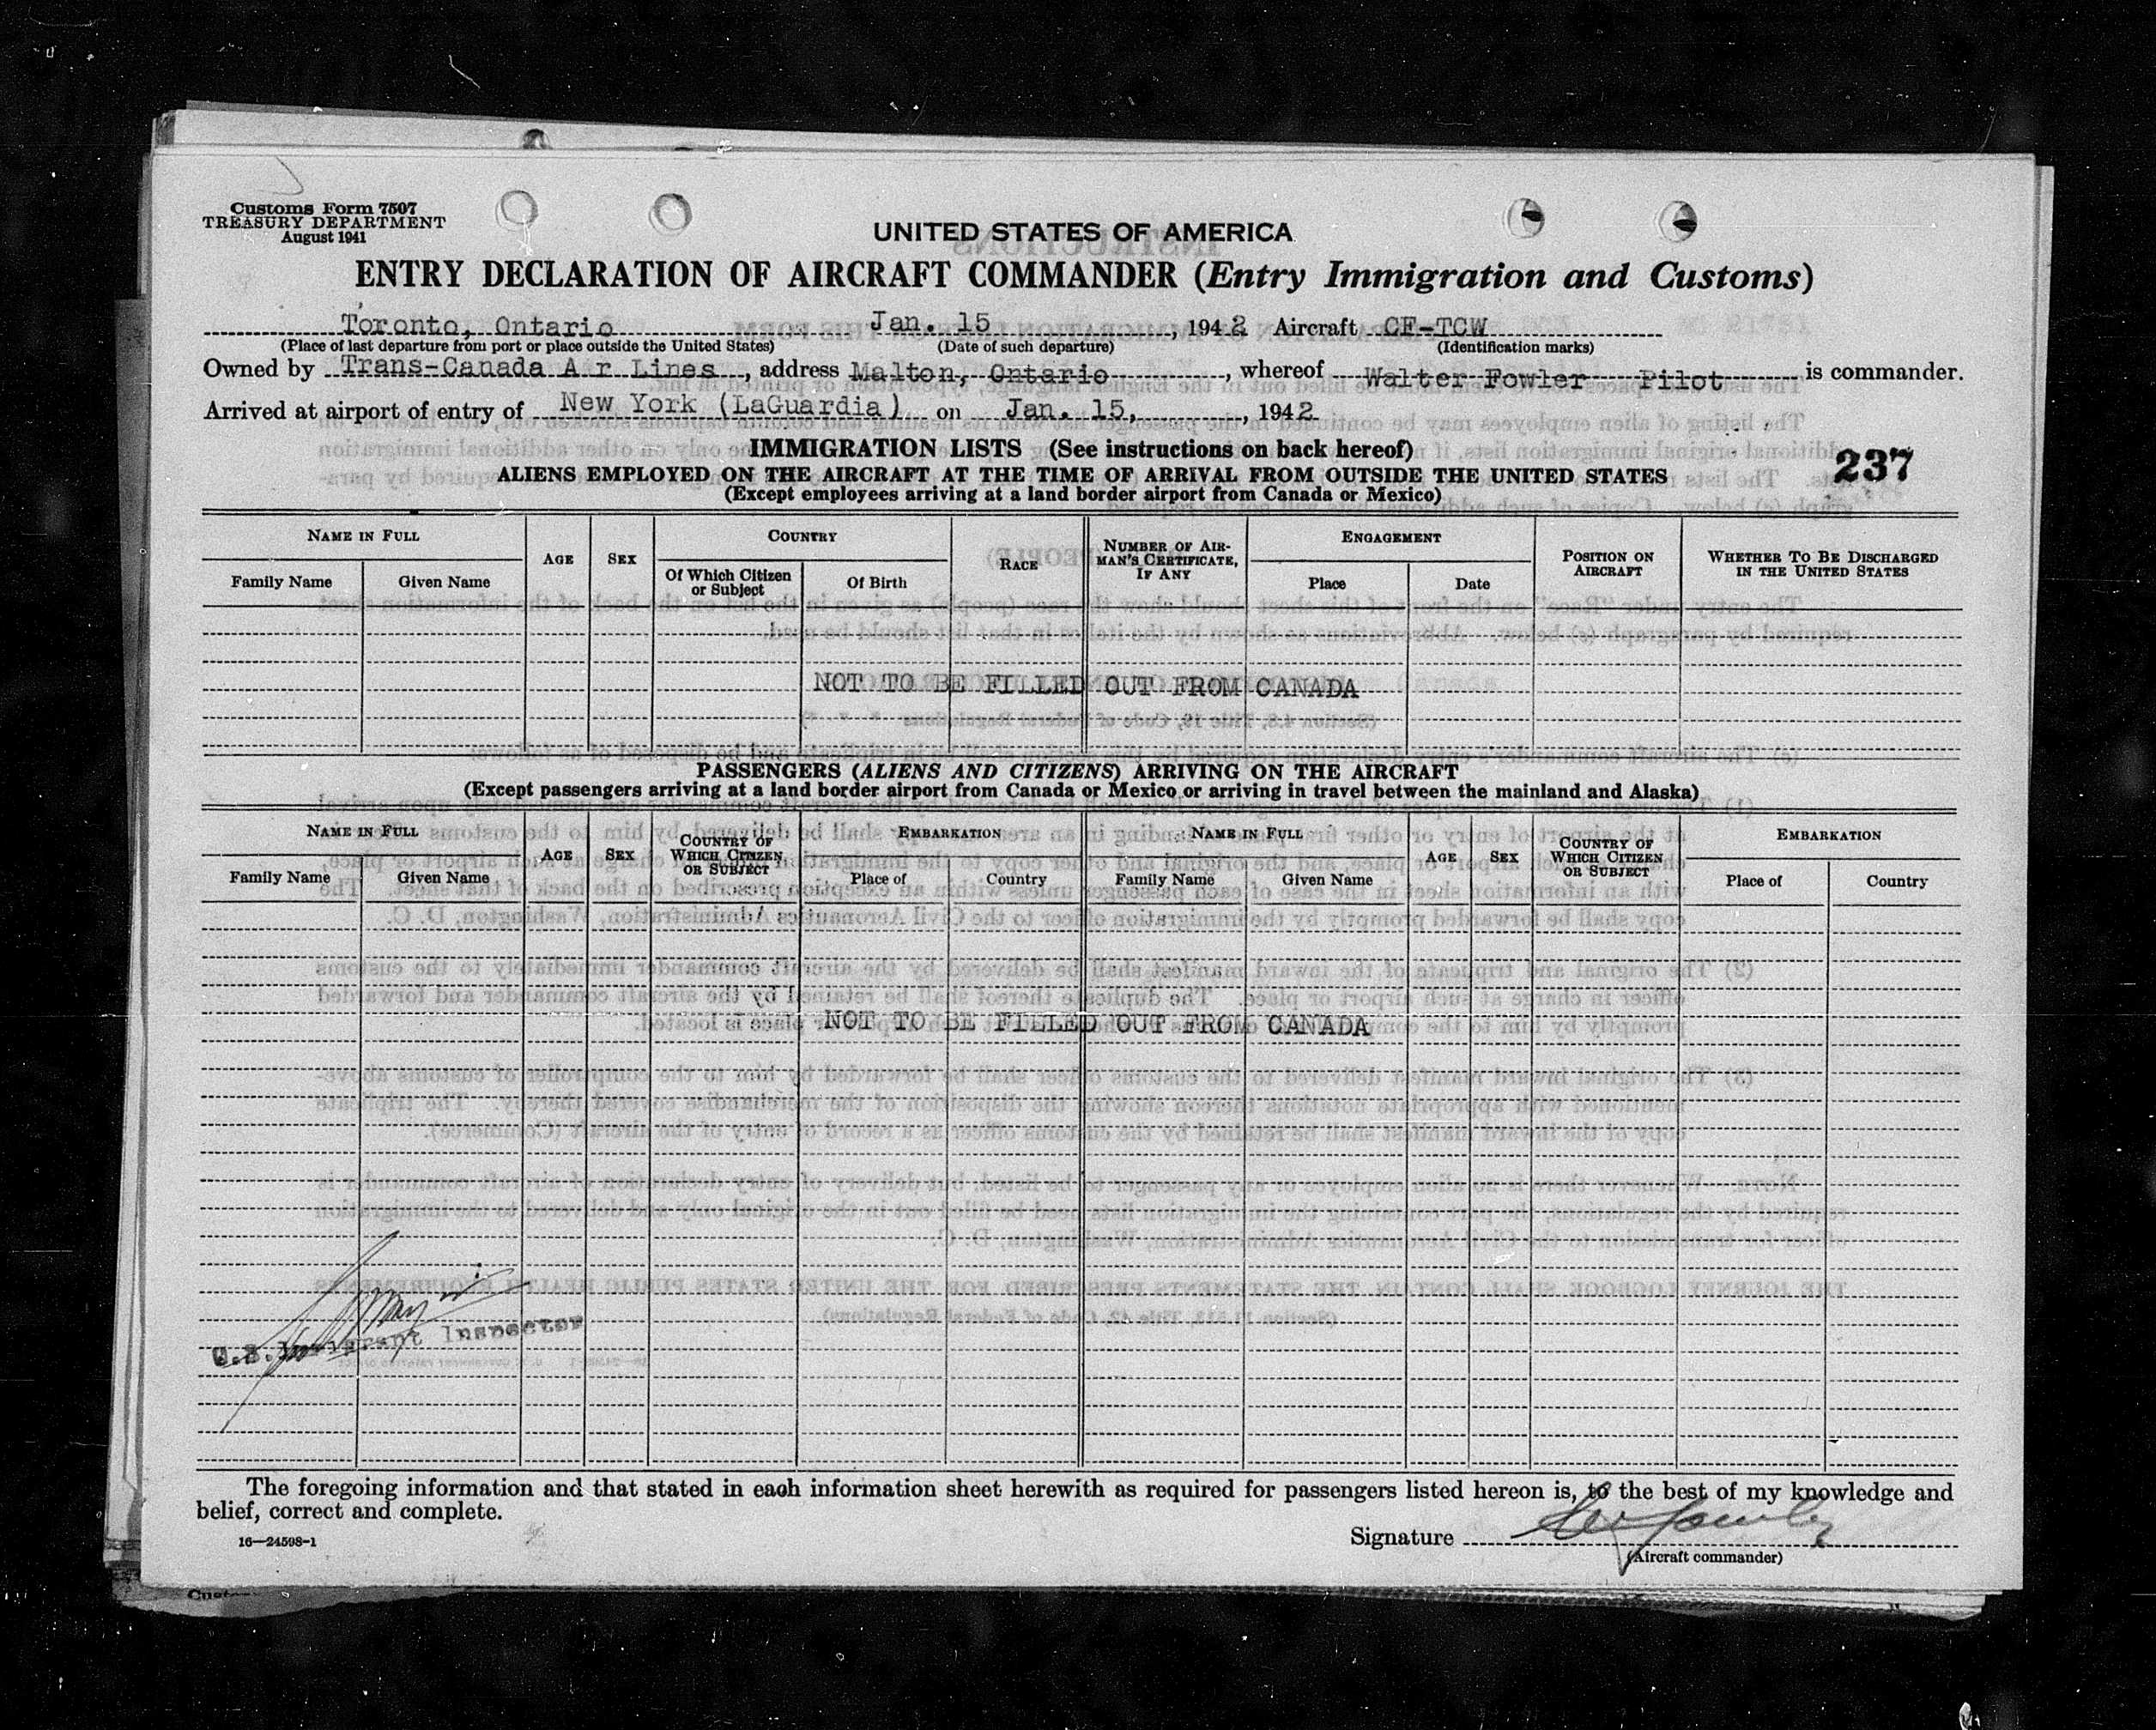 Customs Form 7507
TREASURY DEPARTMENT
August 1941
UNITED STATES OF AMERICA
ENTRY DECLARATION OF AIRCRAFT COMMANDER (Entry Immigration and Customs)
Toronto, Ontario Jan. 15, 1942 Aircraft CF-TCW
(Place of last departure from port or place outside the United States) (Date of such departure) (Identification marks)
Owned by Trans-Canada A r Lines, address Malton, Ontario, whereof Walter Fowler Pilot is commander.
Arrived at airport of entry of New York (LaGuardia) on Jan. 15, 1942
IMMIGRATION LISTS (See instructions on back hereof)
237
ALIENS EMPLOYED ON THE AIRCRAFT AT THE TIME OF ARRIVAL FROM OUTSIDE THE UNITED STATES
(Except employees arriving at a land border airport from Canada or Mexico)
NAME IN FULL AGE SEX COUNTRY RACE NUMBER OF AIRMAN'S CERTIFICATE, IF ANY ENGAGEMENT POSITION ON AIRCRAFT WHETHER TO BE DISCHARGED IN THE UNITED STATES
Family Name Given Name Of Which Citizen or Subject Of Birth Place Date
NOT TO BE FILLED OUT FROM CANADA
PASSENGERS (ALIENS AND CITIZENS) ARRIVING ON THE AIRCRAFT
(Except passengers arriving at a land border airport from Canada or Mexico or arriving in travel between the mainland and Alaska)
NAME IN FULL AGE SEX COUNTRY OF WHICH CITIZEN OR SUBJECT EMBARKATION NAME IN FULL AGE SEX COUNTRY OF WHICH CITIZEN OR SUBJECT EMBARKATION
Family Name Given Name Place of Country Family Name Given Name Place of Country
NOT TO BE FILLED OUT FROM CANADA
U.S. Immigrant Inspector
The foregoing information and that stated in each information sheet herewith as required for passengers listed hereon is, to the best of my knowledge and
belief, correct and complete.
16—24598-1
Signature W Fowler
(Aircraft commander)